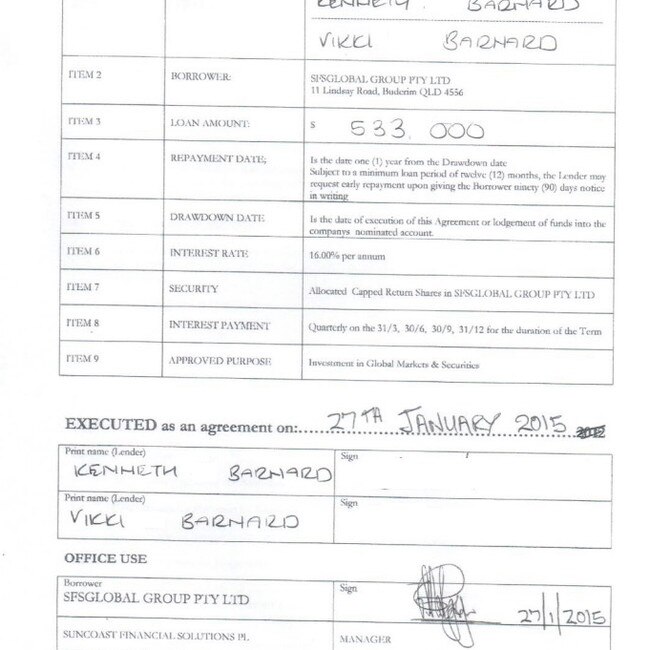 KENNETH BARNARD
VIKKI BARNARD
ITEM 2 BORROWER: SFSGLOBAL GROUP PTY LTD
11 Lindsay Road, Buderim QLD 4556
ITEM 3 LOAN AMOUNT: $ 533.000
ITEM 4 REPAYMENT DATE; Is the date one (1) year from the Drawdown date
Subject to a minimum loan period of twelve (12) months, the Lender may
request early repayment upon giving the Borrower ninety (90) days notice
in writing
ITEM 5 DRAWDOWN DATE Is the date of execution of this Agreement or lodgement of funds into the
companys nominated account.
ITEM 6 INTEREST RATE 16.00% per annum
ITEM 7 SECURITY Allocated Capped Return Shares in SFSGLOBAL GROUP PTY LTD
ITEM 8 INTEREST PAYMENT Quarterly on the 31/3, 30/6, 30/9, 31/12 for the duration of the Term
ITEM 9 APPROVED PURPOSE Investment in Global Markets & Securities
EXECUTED as an agreement on:....27TH JANUARY 2015
Print name (Lender) Sign
KENNETH BARNARD
Print name (Lender) Sign
VIKKI BARNARD
OFFICE USE
Borrower Sign
SFSGLOBAL GROUP PTY LTD 27/1/2015
SUNCOAST FINANCIAL SOLUTIONS PL MANAGER